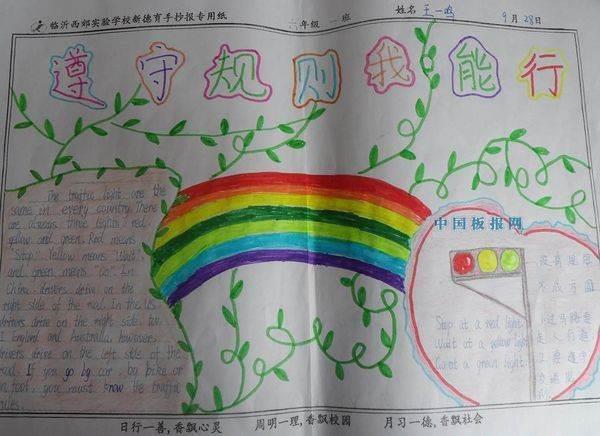 临沂西郊实验学校新德育手抄报专用纸
六年级 一班 姓名 王一鸣 9月28日
遵守规则我能行
The traffic light are the
same in every country. There
are always three lights: red,
yellow and green. Red means
"Stop". Yellow means "Wait".
and green means "Go". In
China, drivers drive on the
right side of the road. In the US
drivers drive on the right side, too.
In England and Australia, however,
drivers drive on the left side of the
road. If you go by car, by bike or
on foot, you must know the traffic
rules.
中国板报网
Stop at a red light.
Wait at a yellow light
Go at a green light.
没有规矩
不成方圆
1.过马路要
走人行道
2.要遵守
交通规
日行一善,香飘心灵 周明一理,香飘校园 月习一德,香飘社会